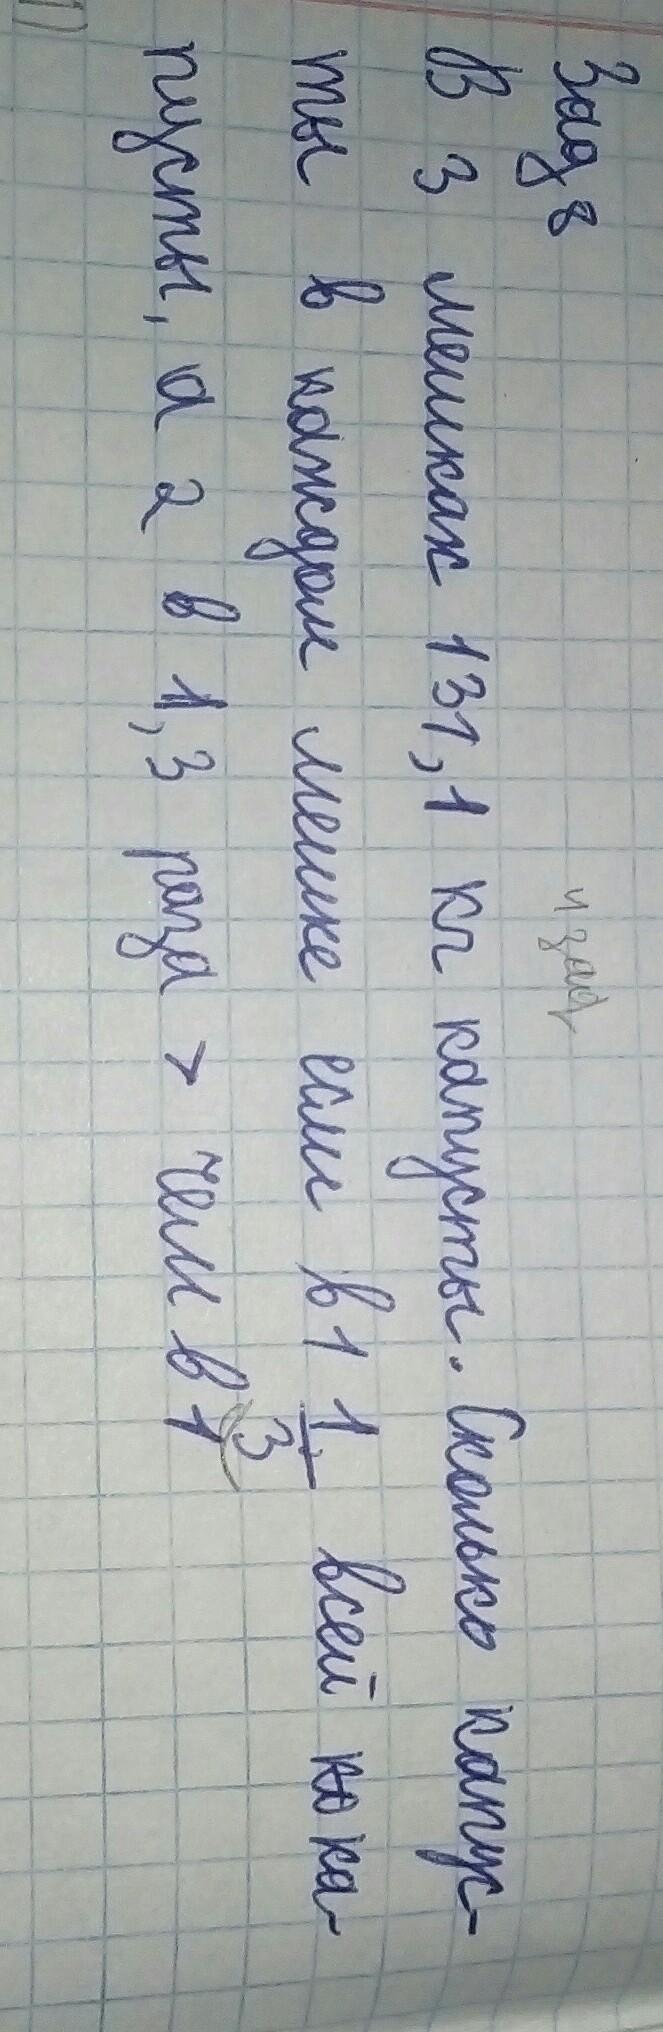 Зад 8
ч зад
В 3 мешках 131,1 кг капусты. Сколько капус-
ты в каждом мешке если в 1 1/3 всей ка-
пусты, а 2 в 1,3 раза > чем в 1
1)